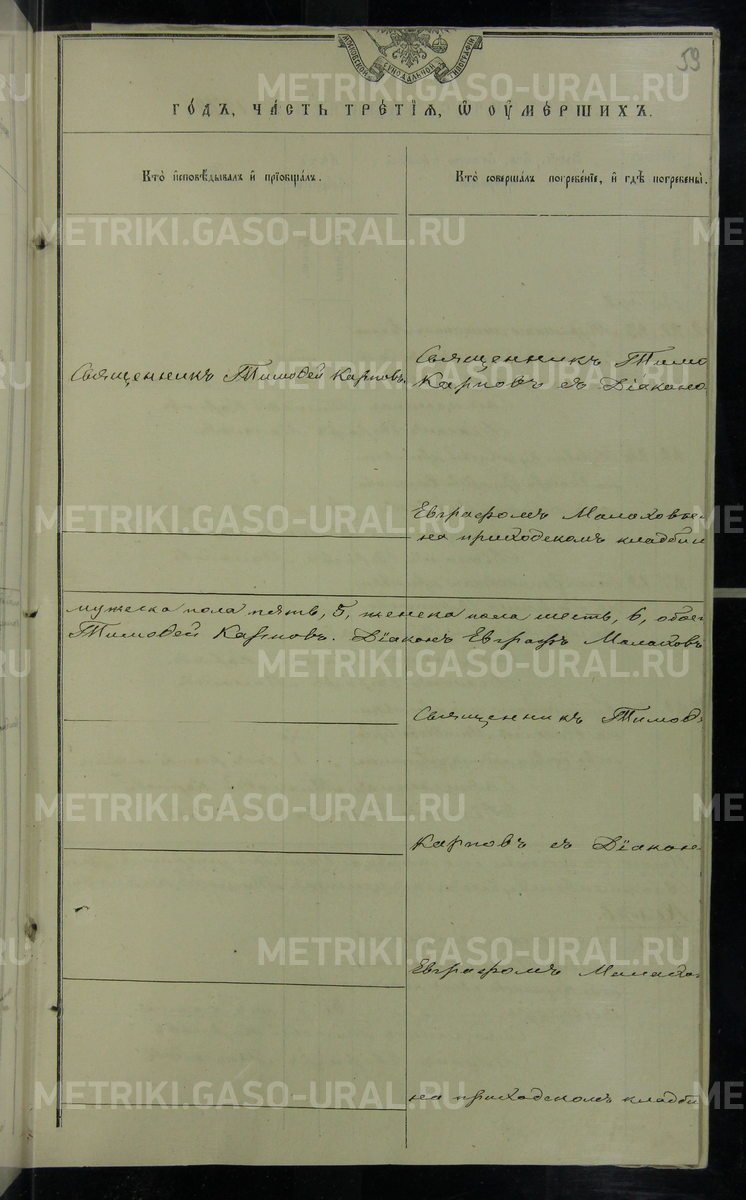 59
МОСКОВСКОЙ СѴНОДАЛЬНОЙ ТИПОГРАФІИ
ГО́ДЪ, ЧА́СТЬ ТРЕ́ТІЯ, Ѡ ОУМЕ́РШИХЪ.
Кто̀ и҆сповѣ́дывалъ и҆ прїобща́лъ.
Кто̀ соверша́лъ погребе́нїе, и҆ гдѣ̀ погребены̀.
Священникъ Тимоѳей Карповъ.
Священникъ Тимо
Карповъ съ Діаконо
Евграфомъ Малаховы
на приходскомъ кладбищ
мужеска пола пять, 5, женска пола шесть, 6, обоег
Тимоѳей Карповъ. Діаконъ Евграфъ Малаховъ
Священникъ Тимоѳ
Карповъ съ Діакон
Евграфомъ Малахо
на приходскомъ кладби
METRIKI.GASO-URAL.RU